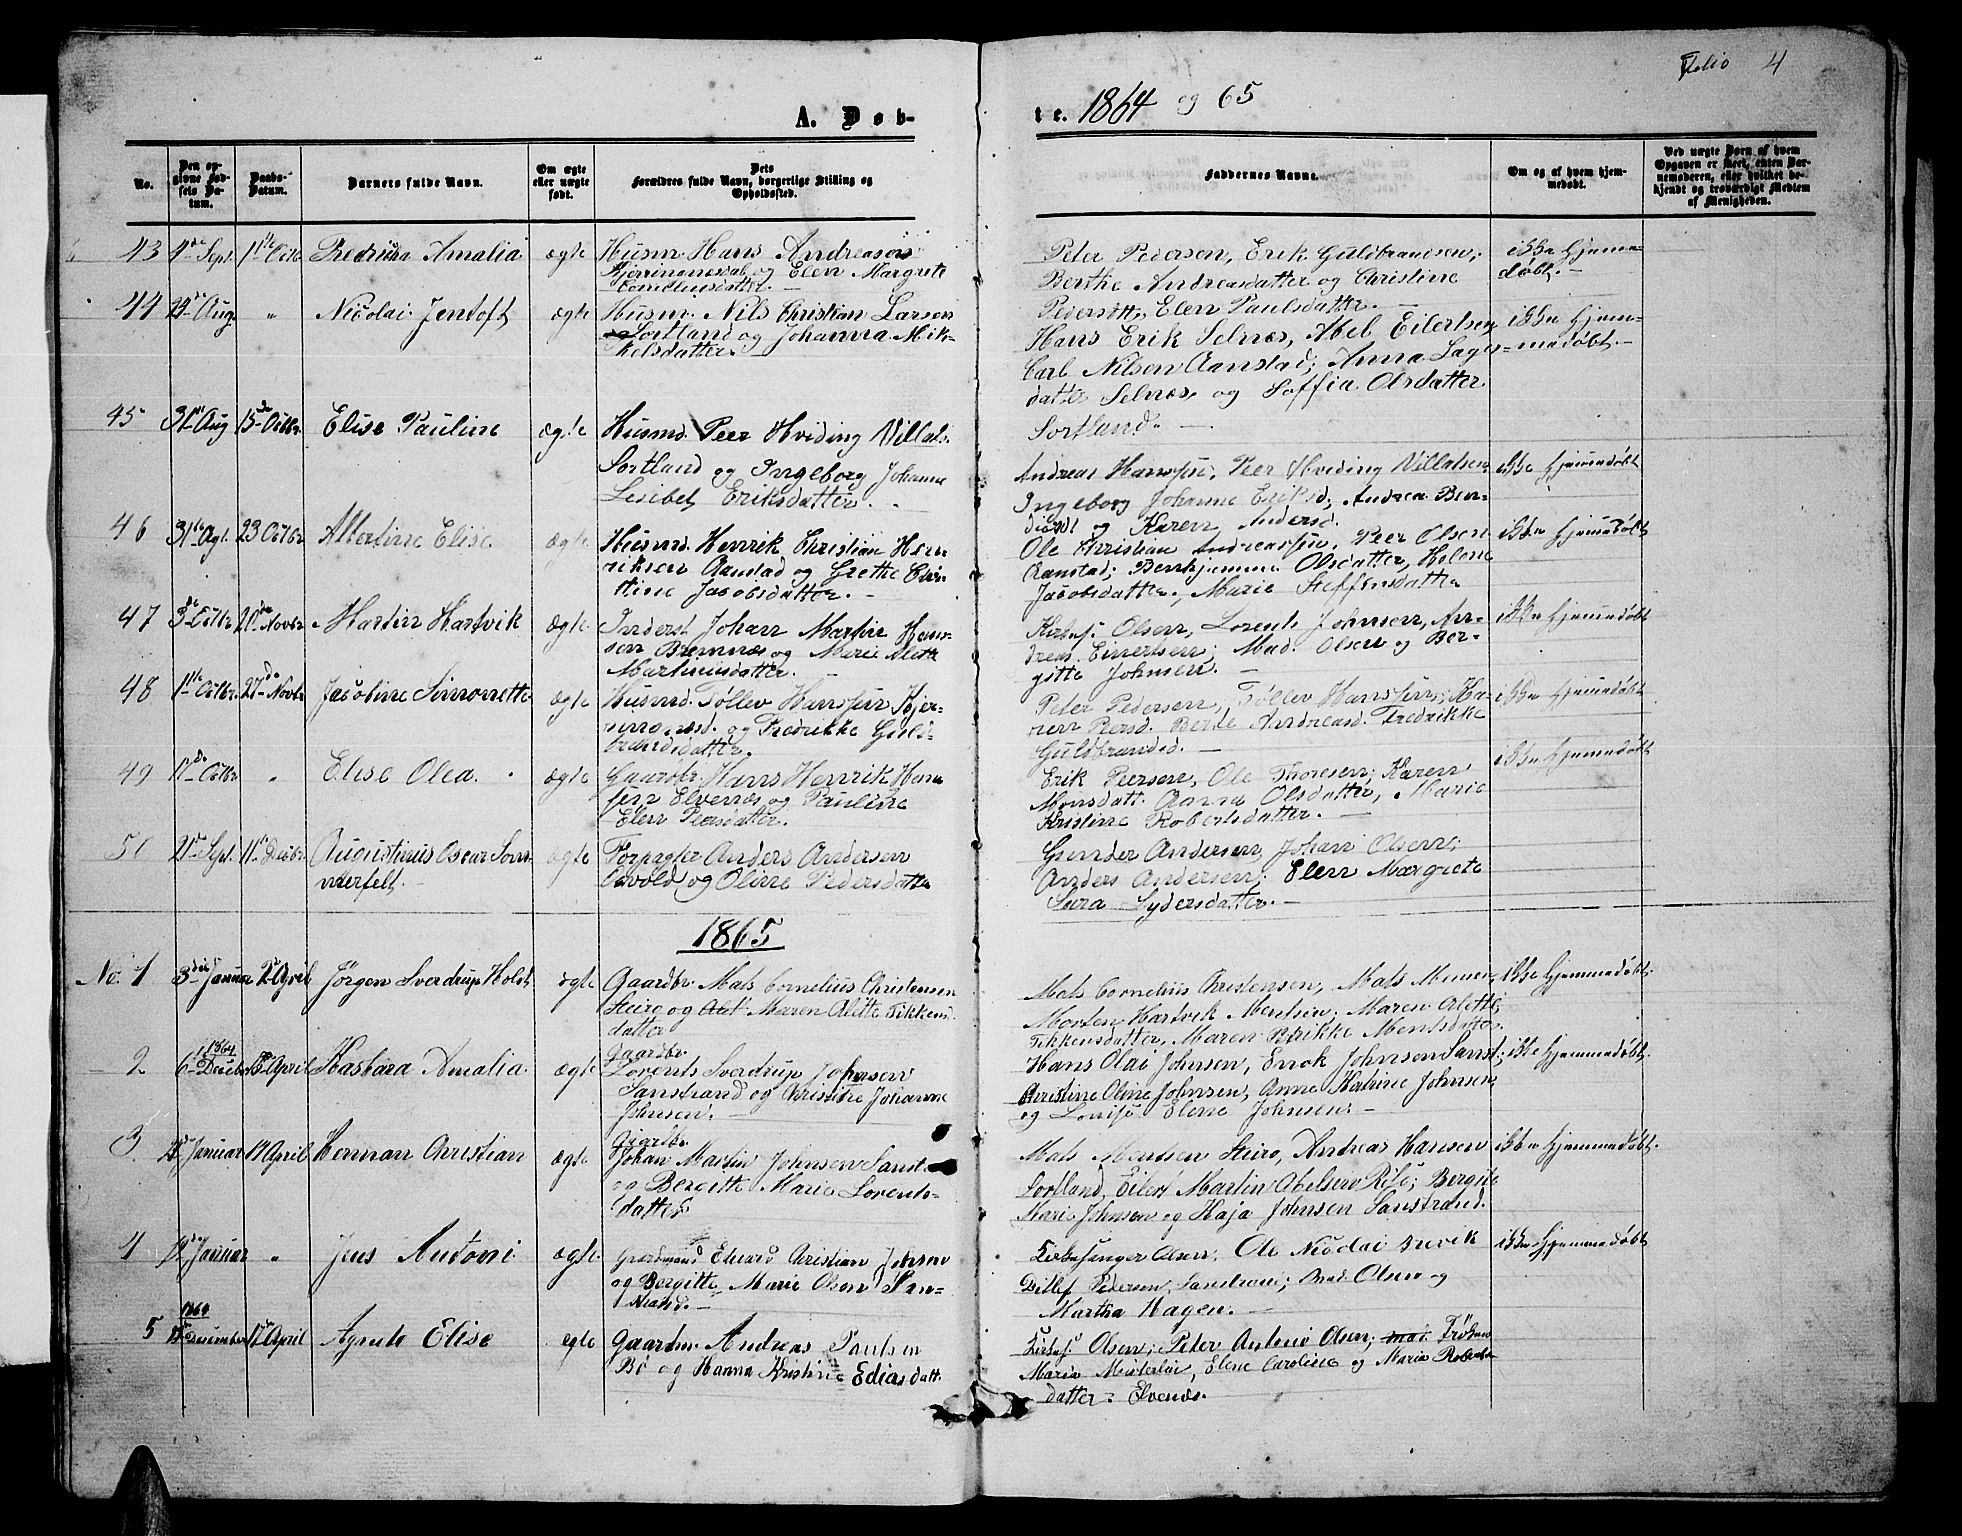 Folio 4
A. Døb-
te. 1864 og 65
No.
Den op-
givne Fød-
sels Da-
tum.
Daabs-
Datum.
Barnets fulde Navn.
Om ægte
eller uægte
født.
Dets
Forældres fulde Navn, borgerlige Stilling og
Opholdssted.
Faddernes Navne.
Om og af hvem hjem-
medøbt.
Ved uægte Børn af hvem
Opgaven er skeet, enten Bar-
nemoderen, eller hvilket be-
kjendt og troværdigt Medlem
af Menigheden.
43 4de Sept. 1ste Octb Fredrikka Amalia ægte Husm. Hans Andreasen
og Elen Margrete
Corneliusdatter. —
Peter Pedersen, Erik Guldbrandsen,
Berthe Andreasdatter og Christine
Pedersdtt, Elen Paulsdatter. —
ikke hjemme-
døbt. —
44 Aug. " Nicolai Jentoft ægte Husm. Nils Christian Larsen
Sortland og Johanna Mik-
kelsdatter.
Hans Erik Selnæs, Abel Eilertsen,
Carl Nilsen Aanstad; Anna Lages-
datter Selnæs, og Soffia Olsdatter
Sortland. —
ikke hjem-
medøbt. —
45 31te Aug 15de Octbr. Elise Pauline ægte Husmd. Peer Hviding Villats.
Sortland og Ingeborg Johanne
Lesibet Eriksdatter. .
Andreas Hanssen; Peer Hviding Villatsen
Ingeborg Johanne Eriksd; Andrea Ben-
og Karen Andersd.
ikke hjemmedøbt
46 31te Agt. 23 Octbr Albertine Elise ægte Husmd. Henrik Christian Hen
riksen Aanstad og Grethe Chri-
stine Jacobsdatter. —
Ole Christian Andreassen, Peer Olsen
Aanstad; Olsdatter, Helene
Jacobsdatter, Marie Steffensdatter
ikke hjemmedøbt
47 3de Octbr 20de Novbr Martin Hartvik ægte Inderst Johan Martin Han-
sen Bremnæs og Marie Aleth
Martinusdatter. —
Kirkes. Olsen, Lorents Johnsen, An-
dreas Enertsen; Mad. Olsen og Ber-
gitte Johnsen. —
ikke hjemmedøbt
48 1ste Octbr. 27de Novbr Jacobine Simonette ægte Husmd. Tollev Hanssen Kjer-
ringnæsd. og Fredrikke Guld-
brandsdatter.
Peter Pedersen, Tøllev Hanssen; Ka-
ren Persd. Berte Andreasd. Fredrikke
Guldbrandsd. —
ikke hjemmedøbt
49 Octbr " Elise Olea. ægte Gaardbr. Hans Henrik Han
sen Elvenæs og Pauline
Elen Peersdatter.
Erik Peersen, Ole Thoresen; Karen
Monsdatt. Aanna Olsdatter, Marie
Kristine Robertsdatter. —
ikke hjemmedøbt
50 Sept. 11te Decbr Augustinus Oscar Som-
merfelt. — ægte Forpagter Anders Andersen
og Oline Pedersdatter
Gunder Andersen, Johan Olsen;
Anders Andersen; Elen Margrete
Sara Sydersdatter. —
1865
No. 1 3die Januar 2den April Jørgen Sverdrup Holst ægte Gaardbr. Mats Cornelius Christensen
Steiro og Maren Alette Tikkens
datter
Mats Cornelius Christensen, Mats Mensen,
Morten Hartvik Mentsen; Maren Alette
Tikkensdatter, Maren Rikke Mentsdatter
ikke hjemmedøbt.
2 6te 1864 Decebr April Barbara Amalia. ægte Gaardbr.
Lorents Sverdrup Johnsen
Sanstrand og Christine Johanne
Johnsen. —
Hans Olai Johnsen, Enok Johnsen Sanst;
Christine Oline Johnsen, Anne Katrine Johnsen,
og Lovise Elene Johnsen. —
ikke hjemmedøbt.
3. Januar 17 April Herman Christian ægte Gaardbr.
Johan Martin Johnsen Sanst
og Bergitte Marie Lorents-
datter
Mats Mentsen Steiro, Andreas Hansen
Sortland, Eilert Martin Abelsen Rise; Bergite
Marie Johnsen og Kaja Johnsen Sanstrand.
ikke hjemmedøbt.
4 Januar " Jens Antoni ægte. Gaardmand Edvard Christian Johnsen
og Bergitte Marie Olsen San-
strand. —
Kirkesanger Olsen; Ole Nicolai Brevik
Ditlef Pedersen, Sandnæs; Mad. Olsen og
Martha Hagen. —
ikke hjemmedøbt
5 1864 December 17de April Agnete Elise ægte Gaardm. Andreas Paulsen
Bø og Hanna Kristine Ediasdatt.
Kirkes. Olsen; Peter Antoni Olsen; Mad. Frøken
Maria, Elene Caroline og Maria Roberts
datter Elvenæs.